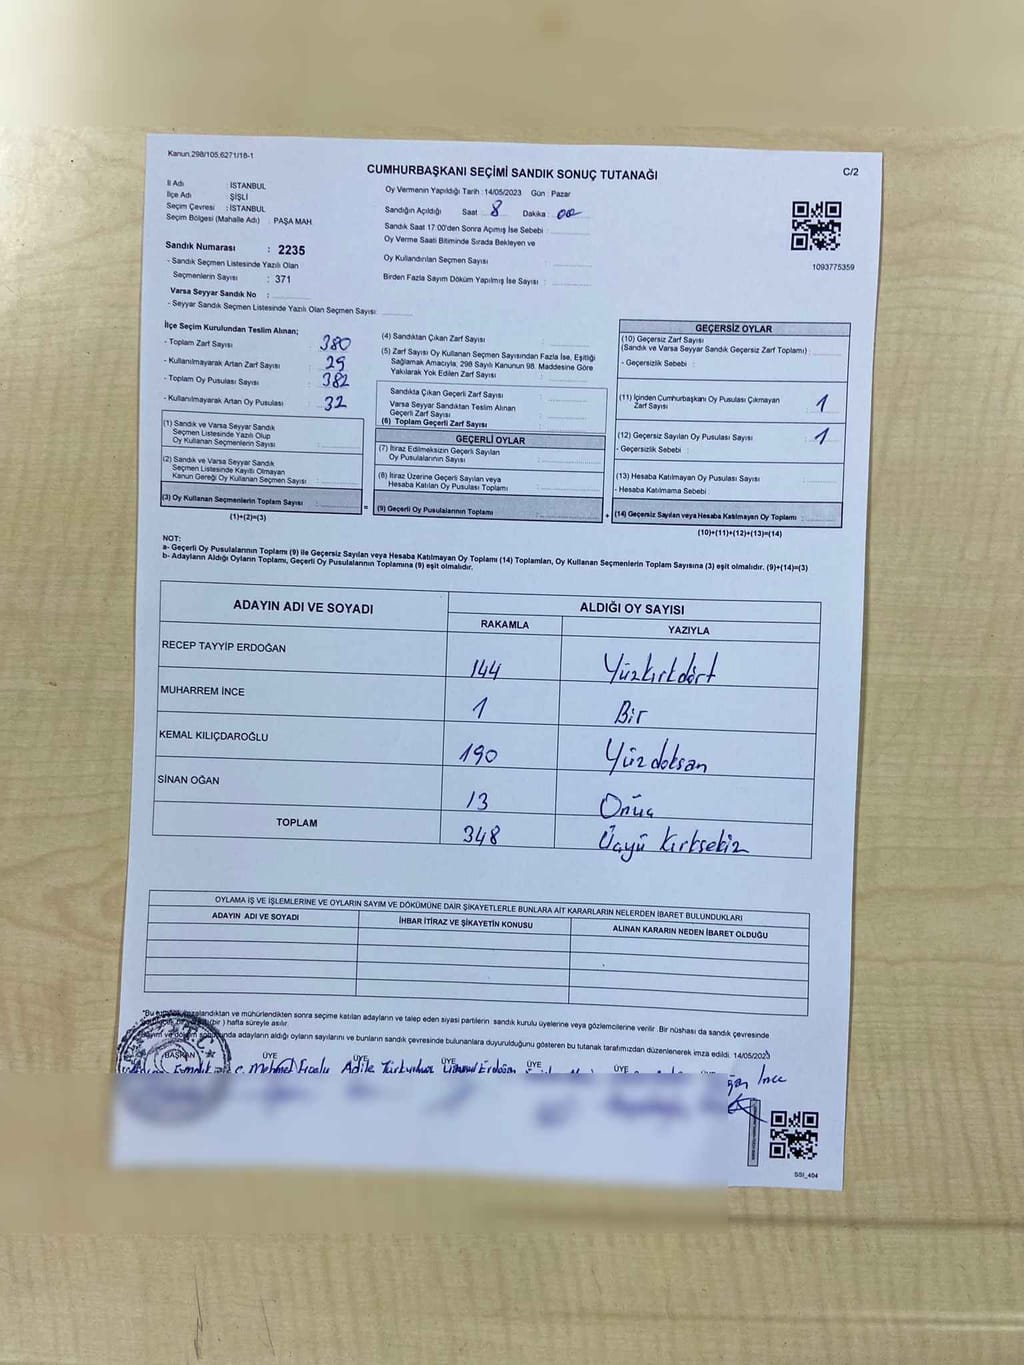 Kanun.298/105,6271/18-1
CUMHURBAŞKANI SEÇİMİ SANDIK SONUÇ TUTANAĞI
C/2
İl Adı : İSTANBUL
İlçe Adı ŞİŞLİ
Seçim Çevresi : İSTANBUL
Seçim Bölgesi (Mahalle Adı) : PAŞA MAH
Sandık Numarası : 2235
- Sandık Seçmen Listesinde Yazılı Olan
Seçmenlerin Sayısı : 371
Varsa Seyyar Sandık No :
- Seyyar Sandık Seçmen Listesinde Yazılı Olan Seçmen Sayısı:
Oy Vermenin Yapıldığı Tarih :14/05/2023 Gün : Pazar
Sandığın Açıldığı Saat 8 Dakika : 00
Sandık Saat 17:00'den Sonra Açımış İse Sebebi :
Oy Verme Saati Bitiminde Sırada Bekleyen ve
Oy Kullandırılan Seçmen Sayısı
Birden Fazla Sayım Döküm Yapılmış İse Sayısı :
1093775359
İlçe Seçim Kurulundan Teslim Alınan;
- Toplam Zarf Sayısı : 380
- Kullanılmayarak Artan Zarf Sayısı : 29
- Toplam Oy Pusulası Sayısı : 382
- Kullanılmayarak Artan Oy Pusulası : 32
(1) Sandık ve Varsa Seyyar Sandık
Seçmen Listesinde Yazılı Olup
Oy Kullanan Seçmenlerin Sayısı :
(2) Sandık ve Varsa Seyyar Sandık
Seçmen Listesinde Kayıtlı Olmayan
Kanun Gereği Oy Kullanan Seçmen Sayısı :
(3) Oy Kullanan Seçmenlerin Toplam Sayısı :
(1)+(2)=(3)
(4) Sandıktan Çıkan Zarf Sayısı :
(5) Zarf Sayısı Oy Kullanan Seçmen Sayısından Fazla İse, Eşitliği
Sağlamak Amacıyla, 298 Sayılı Kanunun 98. Maddesine Göre
Yakılarak Yok Edilen Zarf Sayısı :
Sandıkta Çıkan Geçerli Zarf Sayısı :
Varsa Seyyar Sandıktan Teslim Alınan
Geçerli Zarf Sayısı :
(6) Toplam Geçerli Zarf Sayısı :
GEÇERLİ OYLAR
(7) İtiraz Edilmeksizin Geçerli Sayılan
Oy Pusulalarının Sayısı :
(8) İtiraz Üzerine Geçerli Sayılan veya
Hesaba Katılan Oy Pusulası Toplamı :
= (9) Geçerli Oy Pusulalarının Toplamı :
GEÇERSİZ OYLAR
(10) Geçersiz Zarf Sayısı
(Sandık ve Varsa Seyyar Sandık Geçersiz Zarf Toplamı) :
- Geçersizlik Sebebi :
(11) İçinden Cumhurbaşkanı Oy Pusulası Çıkmayan
Zarf Sayısı : 1
(12) Geçersiz Sayılan Oy Pusulası Sayısı : 1
- Geçersizlik Sebebi :
(13) Hesaba Katılmayan Oy Pusulası Sayısı :
- Hesaba Katılmama Sebebi :
+ (14) Geçersiz Sayılan veya Hesaba Katılmayan Oy Toplamı :
(10)+(11)+(12)+(13)=(14)
NOT:
a- Geçerli Oy Pusulalarının Toplamı (9) ile Geçersiz Sayılan veya Hesaba Katılmayan Oy Toplamı (14) Toplamları, Oy Kullanan Seçmenlerin Toplam Sayısına (3) eşit olmalıdır. (9)+(14)=(3)
b- Adayların Aldığı Oyların Toplamı, Geçerli Oy Pusulalarının Toplamına (9) eşit olmalıdır.
ADAYIN ADI VE SOYADI ALDIĞI OY SAYISI
RAKAMLA YAZIYLA
RECEP TAYYİP ERDOĞAN 144 Yüzkırkdört
MUHARREM İNCE 1 Bir
KEMAL KILIÇDAROĞLU 190 Yüzdoksan
SİNAN OĞAN 13 Onüç
TOPLAM 348 Üçyü Kırksekiz
OYLAMA İŞ VE İŞLEMLERİNE VE OYLARIN SAYIM VE DÖKÜMÜNE DAİR ŞİKAYETLERLE BUNLARA AİT KARARLARIN NELERDEN İBARET BULUNDUKLARI
ADAYIN ADI VE SOYADI İHBAR İTİRAZ VE ŞİKAYETİN KONUSU ALINAN KARARIN NEDEN İBARET OLDUĞU
mühürlendikten sonra seçime katılan adayların ve talep eden siyasi partilerin sandık kurulu üyelerine veya gözlemcilerine verilir .Bir nüshası da sandık çevresinde
(bir ) hafta süreyle asılır.
adayların aldığı oyların sayılarını ve bunların sandık çevresinde bulunanlara duyurulduğunu gösteren bu tutanak tarafımızdan düzenlenerek imza edildi. 14/05/2023
BAŞKAN ÜYE ÜYE ÜYE ÜYE ÜYE
Mehmet Adile Erdoğan İnce
SSI_404